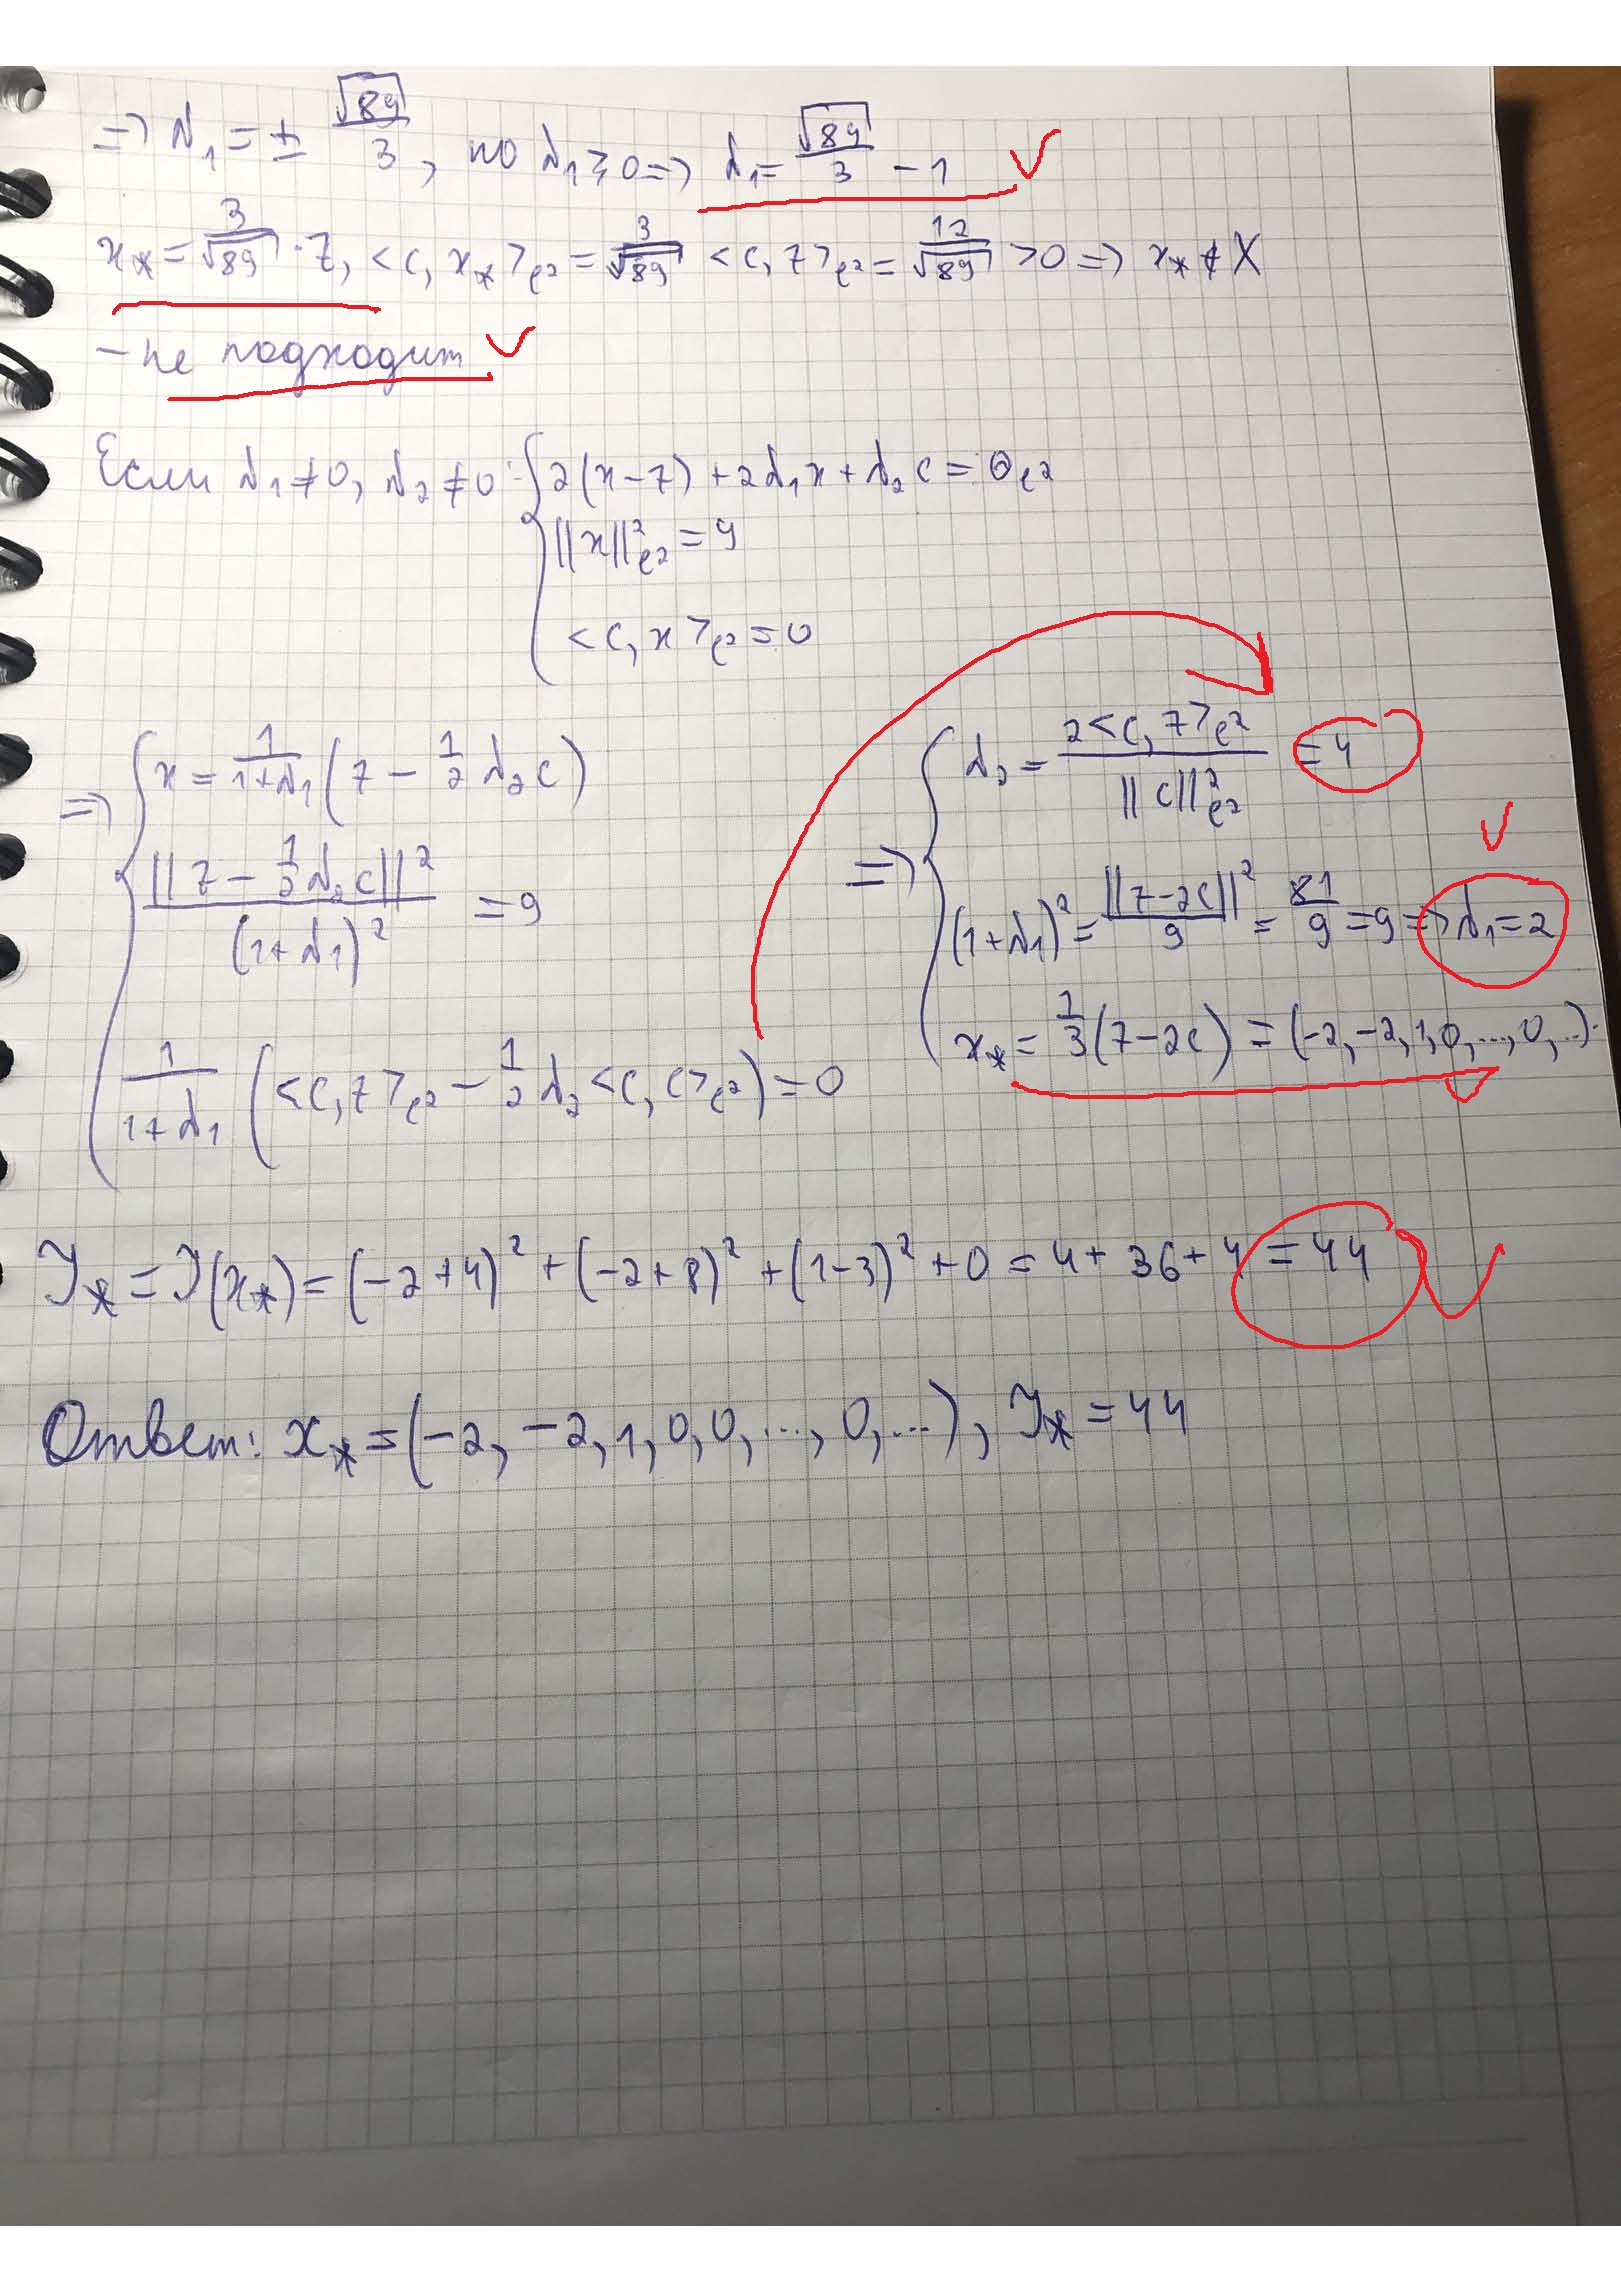 => λ₁ = ± √89/3, но λ₁ ≥ 0 => λ₁ = √89/3 - 1
x* = 3/√89 · z, <c, x*>ℓ² = 3/√89 <c, z>ℓ² = 12/√89 > 0 => x* ∉ X
- не подходит
Если λ₁ ≠ 0, λ₂ ≠ 0: { 2(x-z) + 2λ₁x + λ₂c = Θℓ²
||x||²ℓ² = 9
<c, x>ℓ² = 0
=> { x = 1/(1+λ₁) (z - 1/2 λ₂c)
||z - 1/2 λ₂c||² / (1+λ₁)² = 9
1/(1+λ₁) (<c, z>ℓ² - 1/2 λ₂ <c, c>ℓ²) = 0
=> { λ₂ = 2<c, z>ℓ² / ||c||²ℓ² = 4
(1+λ₁)² = ||z-2c||²/9 = 81/9 = 9 => λ₁ = 2
x* = 1/3 (z-2c) = (-2, -2, 1, 0, ..., 0, ...).
J* = J(x*) = (-2+4)² + (-2+8)² + (1-3)² + 0 = 4 + 36 + 4 = 44
Ответ: x* = (-2, -2, 1, 0, 0, ..., 0, ...), J* = 44